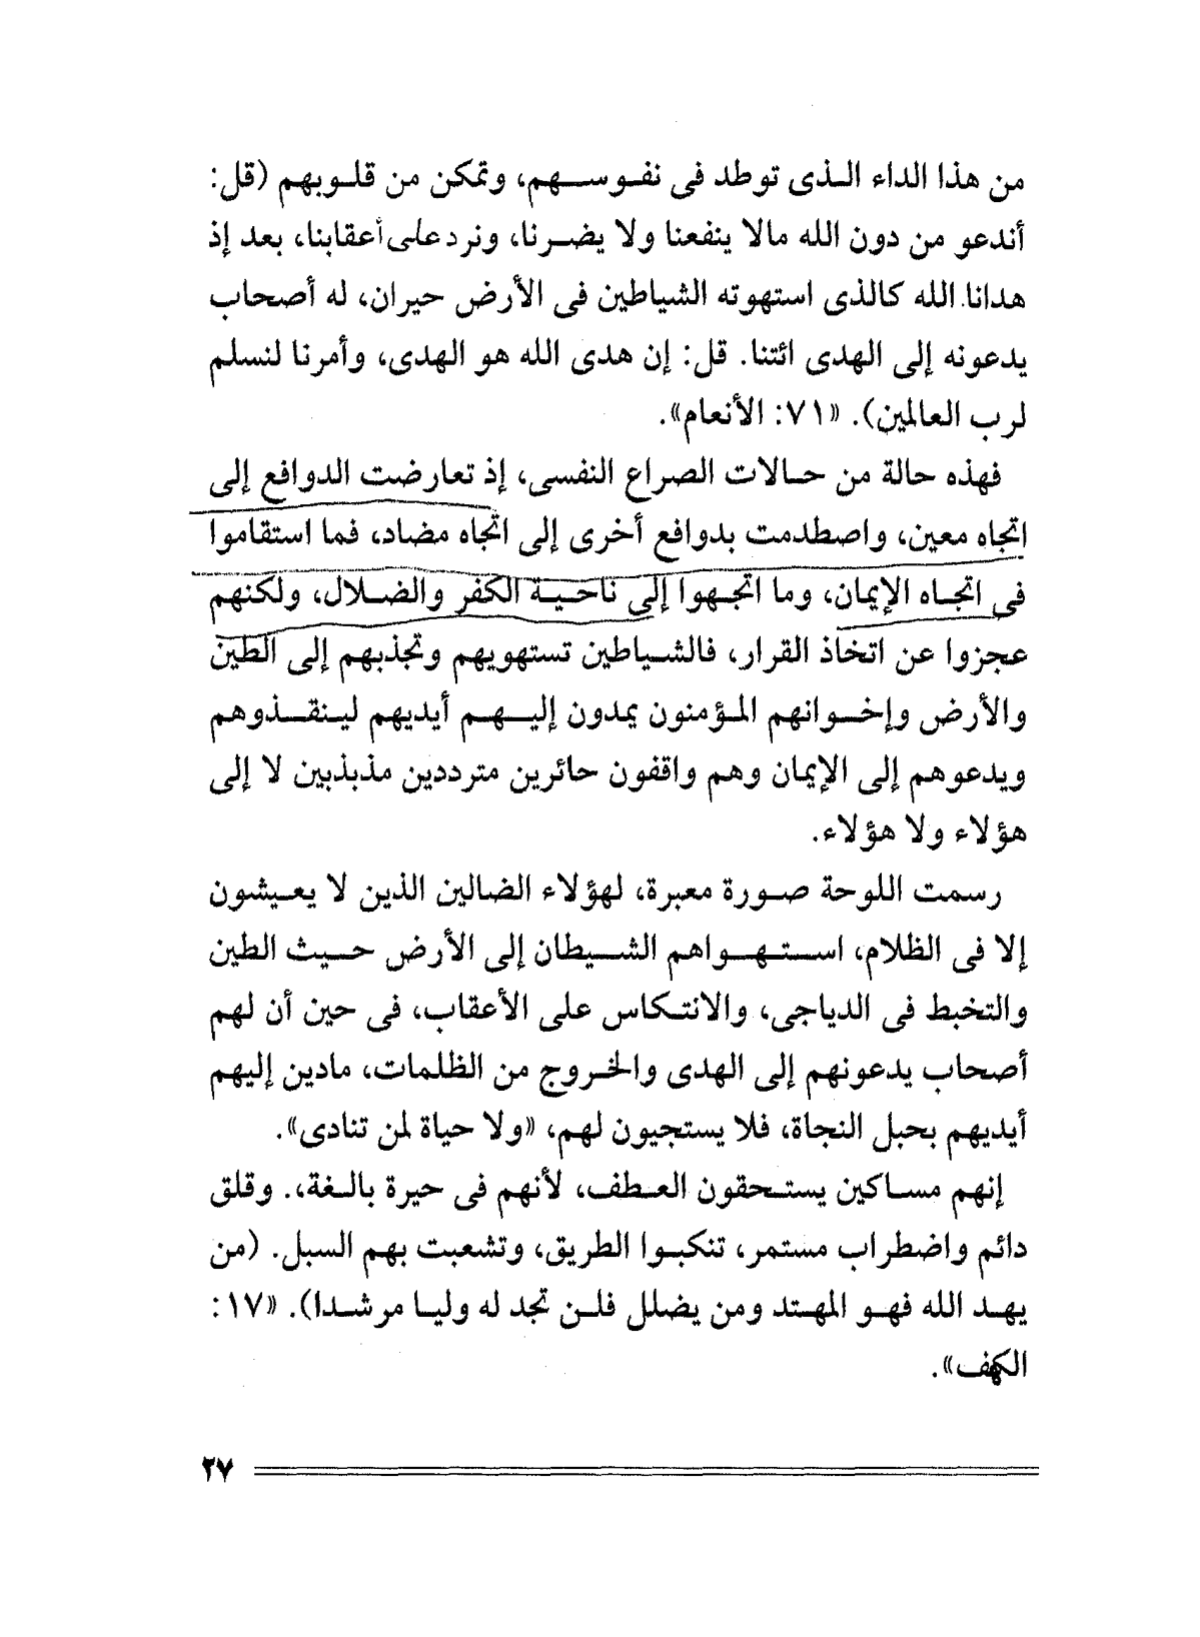 من هذا الداء الذى توطد فى نفوسهم، وتمكن من قلوبهم (قل:
أندعو من دون الله مالا ينفعنا ولا يضرنا، ونرد على أعقابنا، بعد إذ
هدانا الله كالذى استهوته الشياطين فى الأرض حيران، له أصحاب
يدعونه إلى الهدى ائتنا. قل: إن هدى الله هو الهدى، وأمرنا لنسلم
لرب العالمين). «٧١: الأنعام».
فهذه حالة من حالات الصراع النفسى، إذ تعارضت الدوافع إلى
اتجاه معين، واصطدمت بدوافع أخرى إلى اتجاه مضاد، فما استقاموا
فى اتجاه الإيمان، وما اتجهوا إلى ناحية الكفر والضلال، ولكنهم
عجزوا عن اتخاذ القرار، فالشياطين تستهويهم وتجذبهم إلى الطين
والأرض وإخوانهم المؤمنون يمدون إليهم أيديهم لينقذوهم
ويدعوهم إلى الإيمان وهم واقفون حائرين مترددين مذبذبين لا إلى
هؤلاء ولا هؤلاء.
رسمت اللوحة صورة معبرة، لهؤلاء الضالين الذين لا يعيشون
إلا فى الظلام، استهواهم الشيطان إلى الأرض حيث الطين
والتخبط فى الدياجى، والانتكاس على الأعقاب، فى حين أن لهم
أصحاب يدعونهم إلى الهدى والخروج من الظلمات، مادين إليهم
أيديهم بحبل النجاة، فلا يستجيون لهم، «ولا حياة لمن تنادى».
إنهم مساكين يستحقون العطف، لأنهم فى حيرة بالغة،. وقلق
دائم واضطراب مستمر، تنكبوا الطريق، وتشعبت بهم السبل. (من
يهد الله فهو المهتد ومن يضلل فلن تجد له وليا مرشدا). «١٧:
الكهف».
٢٧